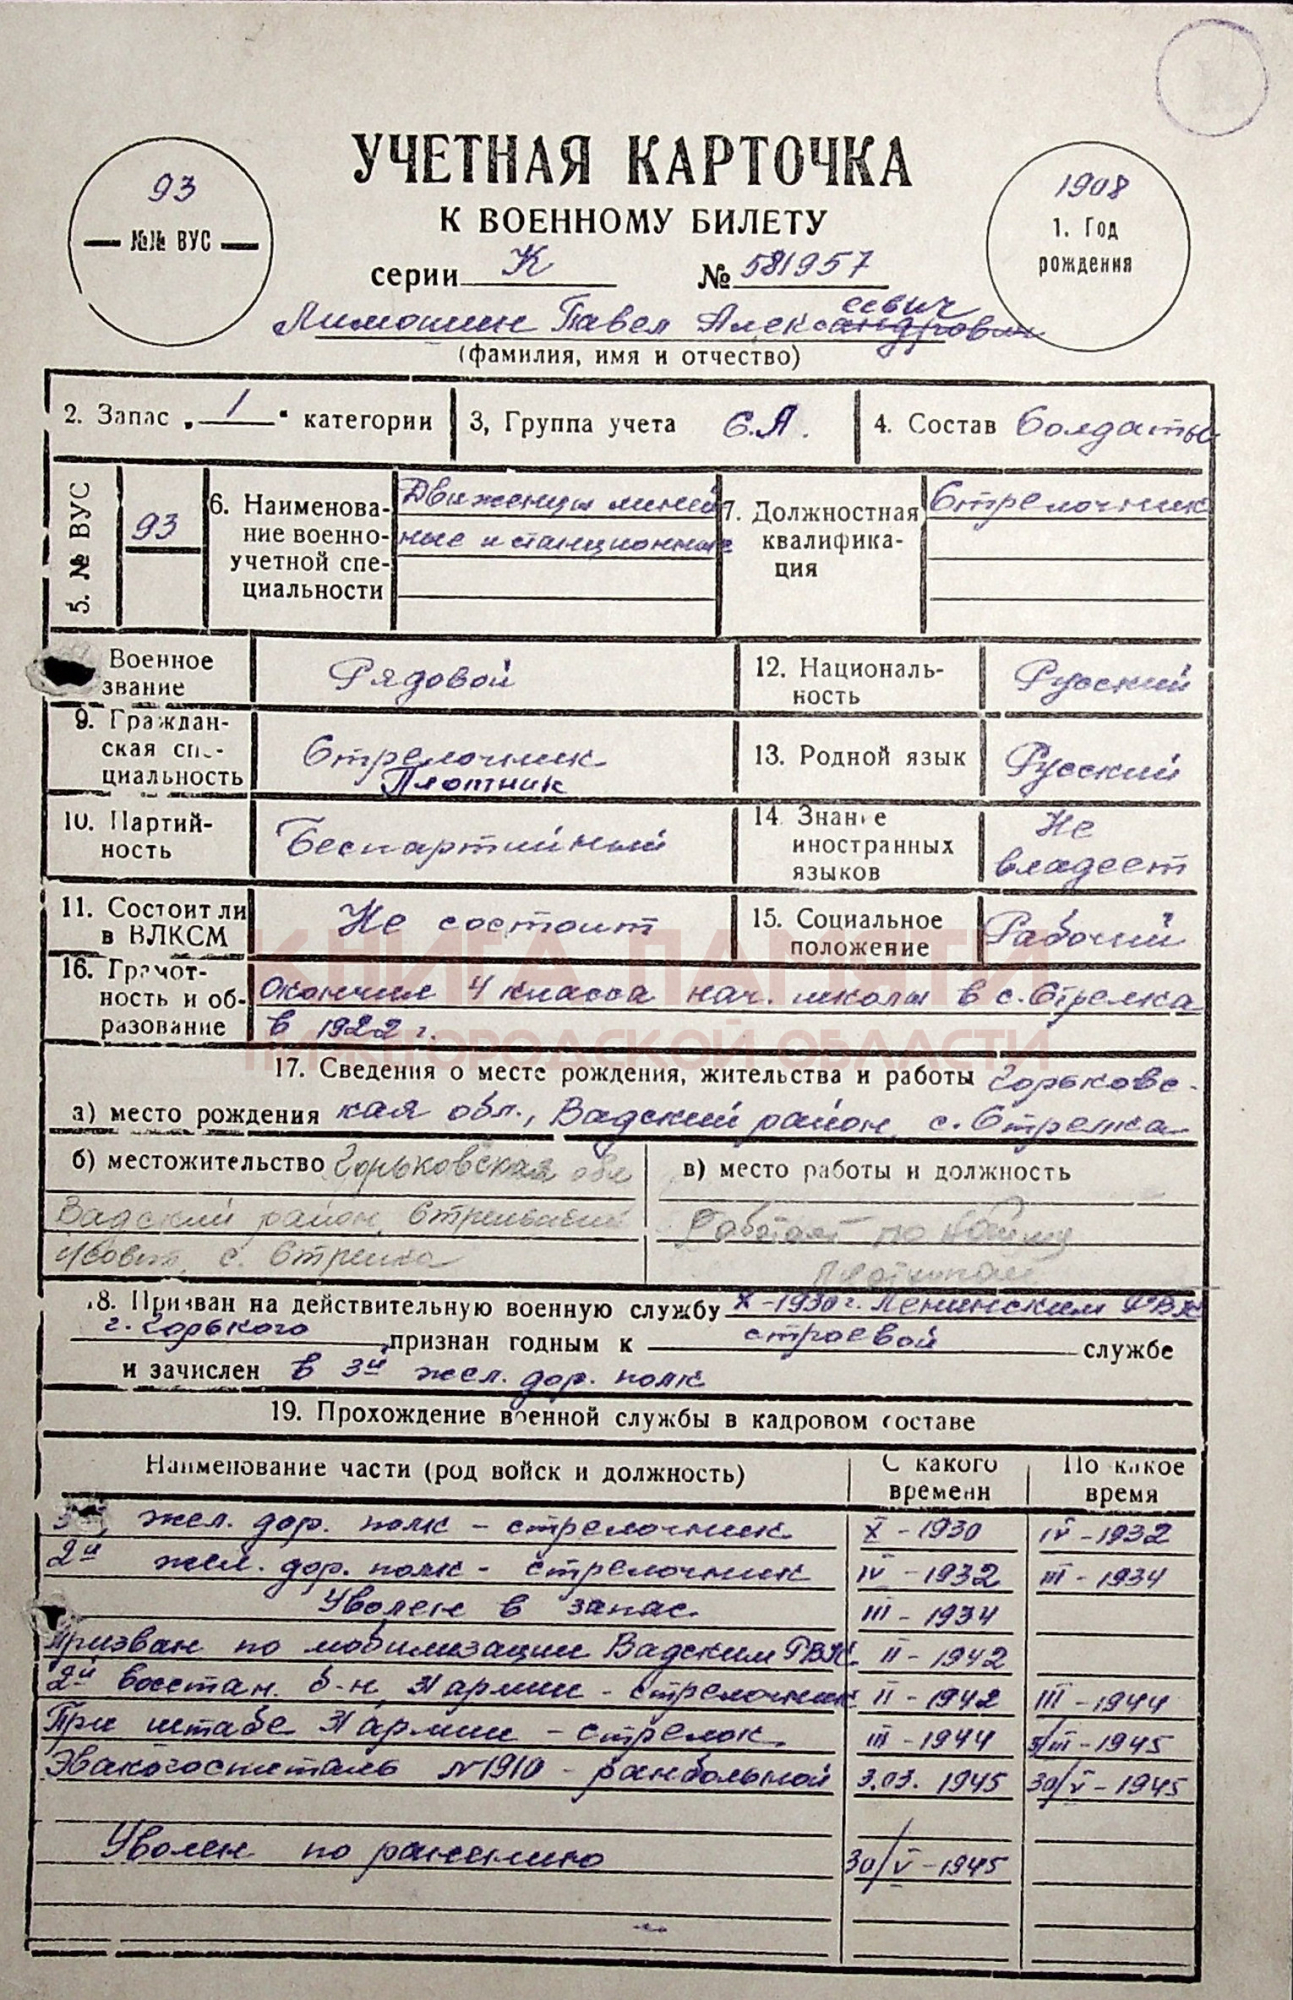 УЧЕТНАЯ КАРТОЧКА
К ВОЕННОМУ БИЛЕТУ
93
№№ ВУС
1908
1. Год
рождения
серии К № 581957
Лимошин Павел Александрович
еевич
(фамилия, имя и отчество)
2. Запас „ 1 “ категории
3, Группа учета С.А.
4. Состав Солдаты
5. № ВУС
93
6. Наименова-
ние военно-
учетной спе-
циальности
Движенцы линей
ные и станционные
7. Должностная
квалифика-
ция
Стрелочник
Военное
звание
Рядовой
12. Националь-
ность
Русский
9. Граждан-
ская спе-
циальность
Стрелочник
Плотник
13. Родной язык
Русский
10. Партий-
ность
Беспартийный
14 Знание
иностранных
языков
Не
владеет
11. Состоит ли
в ВЛКСМ
Не состоит
15. Социальное
положение
Рабочий
КНИГА ПАМЯТИ
НИЖЕГОРОДСКОЙ ОБЛАСТИ
16. Грамот-
ность и об-
разование
Окончил 4 класса нач. школы в с. Стрелка
в 1922 г.
17. Сведения о месте рождения, жительства и работы Горьковс-
а) место рождения кая обл., Вадский район, с. Стрелка
б) местожительство Горьковская обл
Вадский район, Стрельский
с. Стрелка
в) место работы и должность
Работает по найму
плотником
18. Призван на действительную военную службу X-1930 г. Ленинским РВК
г. Горького признан годным к строевой службе
и зачислен в 3й жел. дор. полк
19. Прохождение военной службы в кадровом составе
Наименование части (род войск и должность)
С какого
времени
По какое
время
3й жел. дор. полк - стрелочник X - 1930 IV - 1932
2й жел. дор. полк - стрелочник IV - 1932 III - 1934
Уволен в запас. III - 1934
Призван по мобилизации Вадским РВК. II - 1942
2й восстан. б-н, Я армии - стрелочник II - 1942 III - 1944
При штабе Я армии - стрелок. III - 1944 3/III - 1945
Эвакогоспиталь №1910 - ранбольной 3.03. 1945 30/V - 1945
Уволен по ранению 30/V - 1945